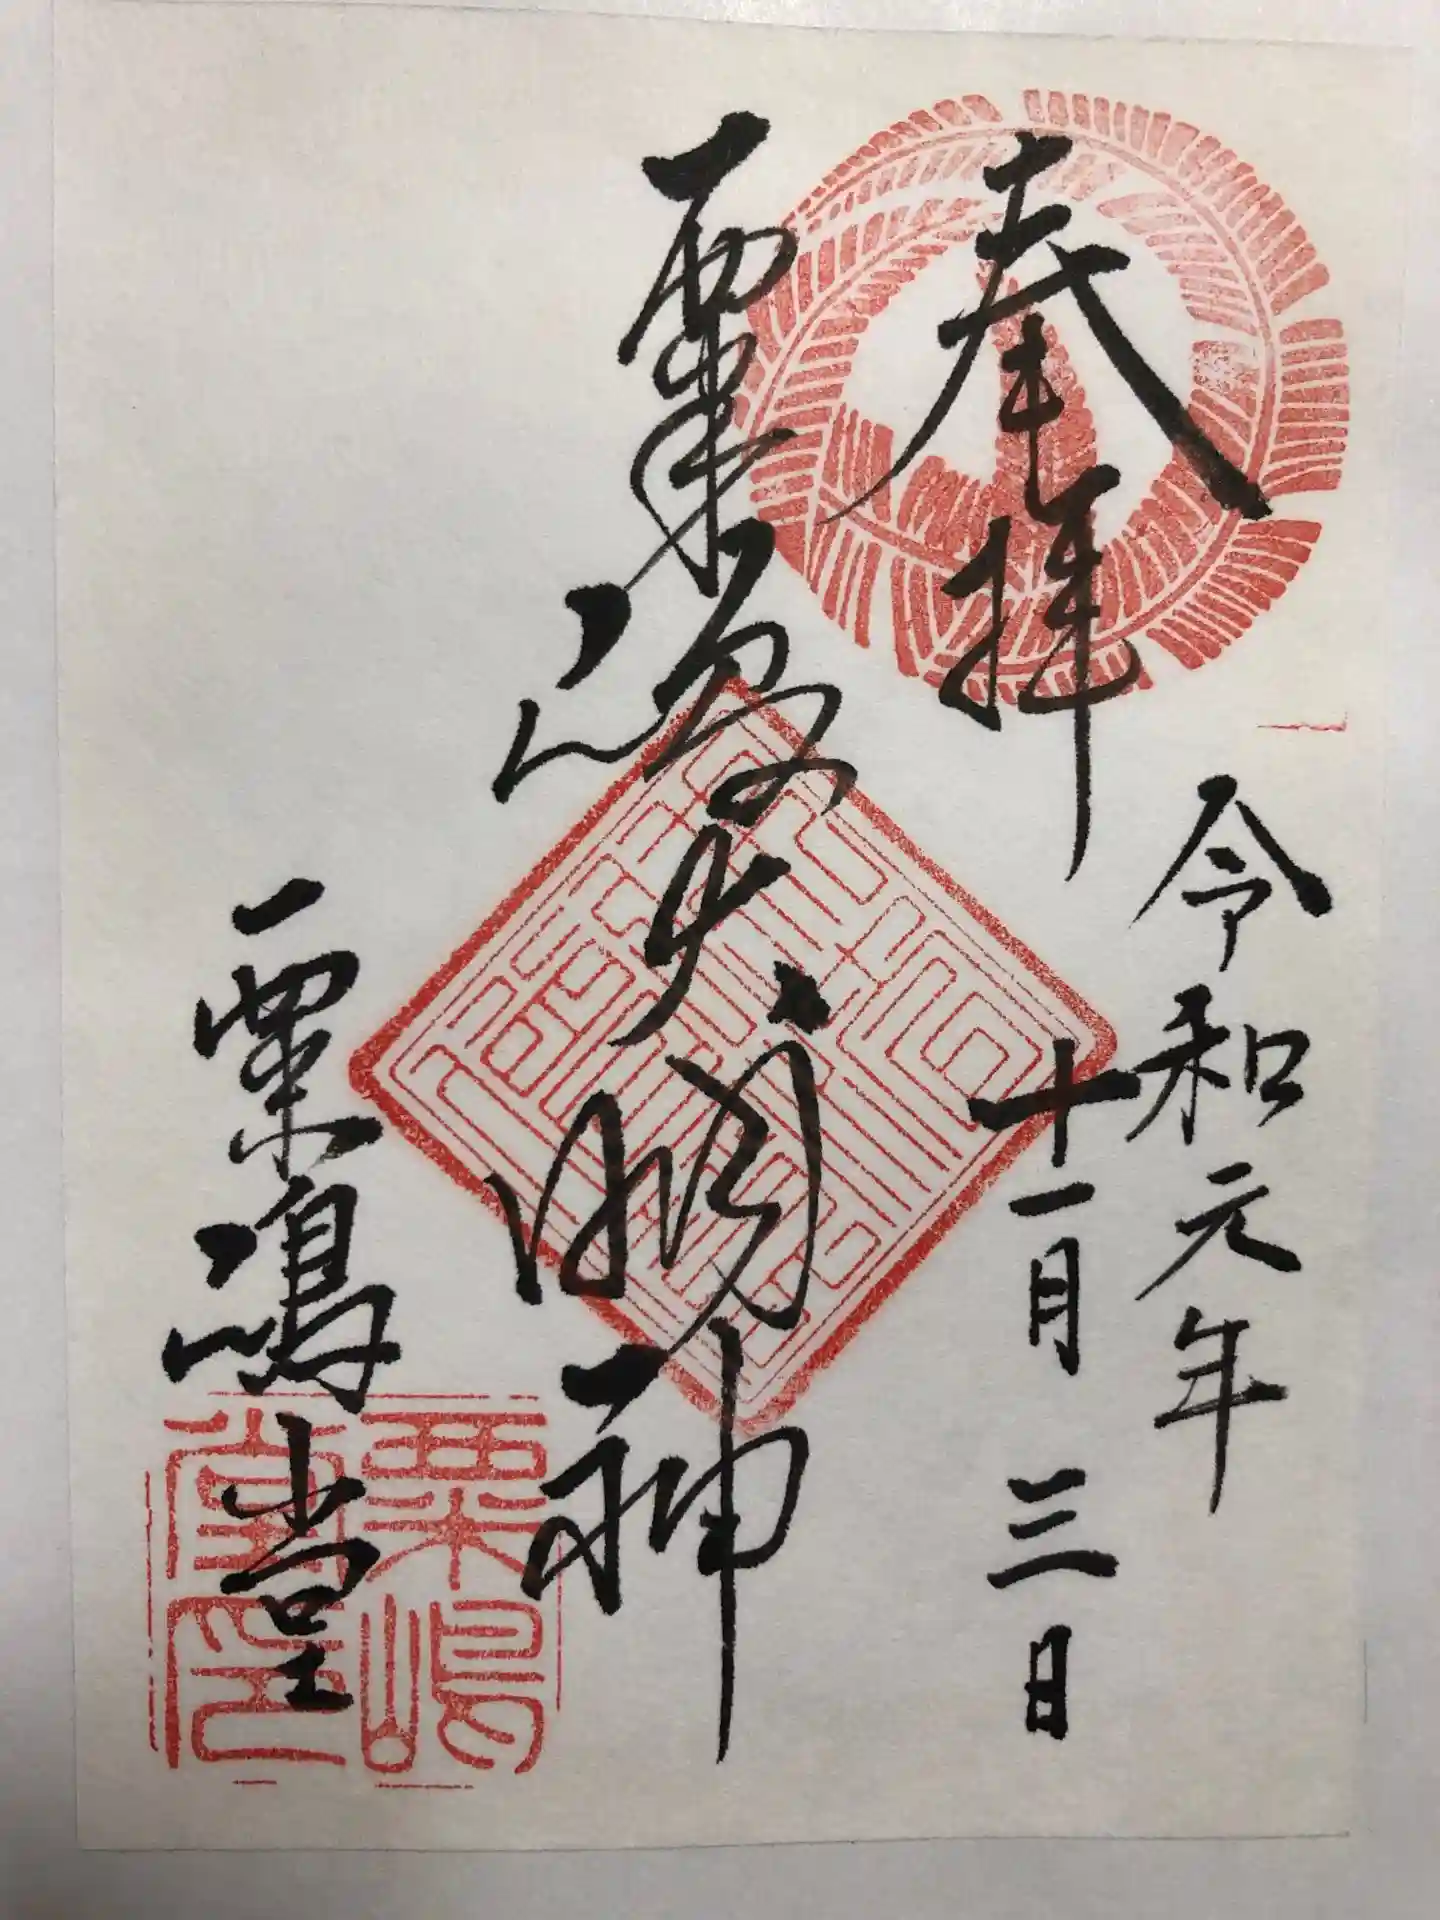 奉拝
令和元年
十一月三日
粟嶋大明神
粟嶋堂
粟嶋
堂印